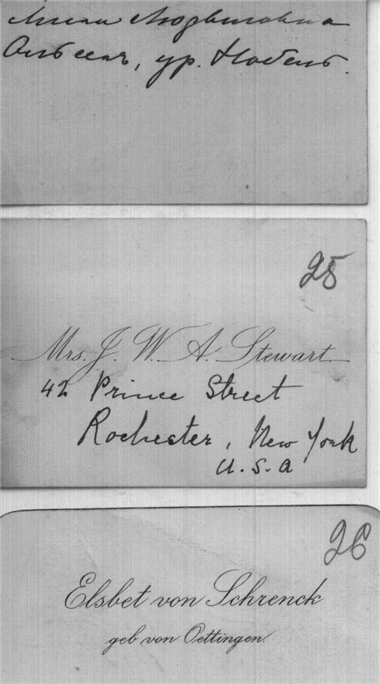 Мина Людвиговна
Ольсен, ур. Нобель.
25
Mrs. J. W. A. Stewart
42 Prince Street
Rochester, New York
U.S.A
26
Elsbet von Schrenck
geb von Oettingen